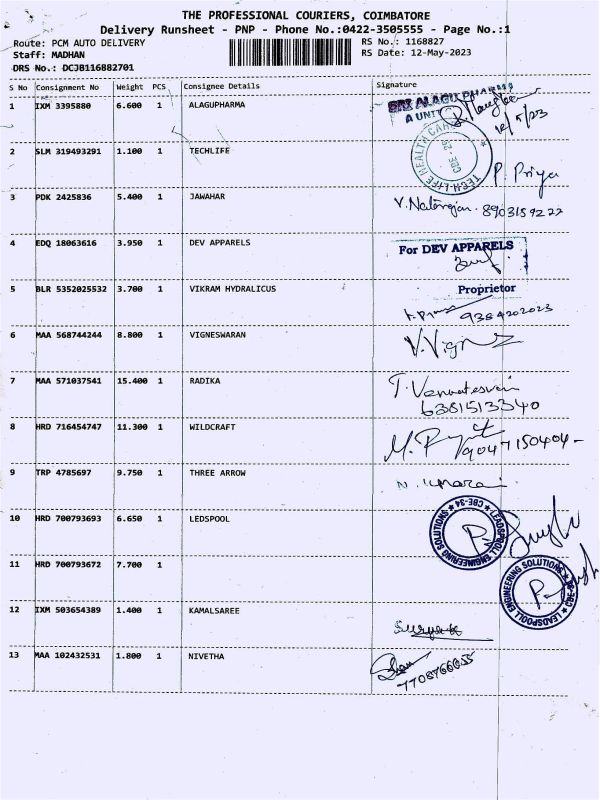 THE PROFESSIONAL COURIERS, COIMBATORE
Delivery Runsheet - PNP - Phone No.:0422-3505555 - Page No.:1
Route: PCM AUTO DELIVERY
RS No.: 1168827
Staff: MADHAN
RS Date: 12-May-2023
DRS No.: DCJB116882701
S No Consignment No Weight PCS Consignee Details Signature
1 IXM 3395880 6.600 1 ALAGUPHARMA
SRI ALAGU PHARMA
A UNIT
12/5/23
2 SLM 319493291 1.100 1 TECHLIFE
TECH LIFE HEALTH CARE
CBE - 26
P. Priya
3 PDK 2425836 5.400 1 JAWAHAR
V. Natarajan. 8903159222
4 EDQ 18063616 3.950 1 DEV APPARELS
For DEV APPARELS
Proprietor
5 BLR 5352025532 3.700 1 VIKRAM HYDRALICUS
9384202023
6 MAA 568744244 8.800 1 VIGNESWARAN
V. Vign
7 MAA 571037541 15.400 1 RADIKA
6381513340
8 HRD 716454747 11.300 1 WILDCRAFT
9047150404
9 TRP 4785697 9.750 1 THREE ARROW
N. Kumaran
10 HRD 700793693 6.650 1 LEDSPOOL
LEADSPOOLL ENGINEERING SOLUTIONS
CBE-34
11 HRD 700793672 7.700 1
LEADSPOOLL ENGINEERING SOLUTIONS
12 IXM 503654389 1.400 1 KAMALSAREE
13 MAA 102432531 1.800 1 NIVETHA
7708766655